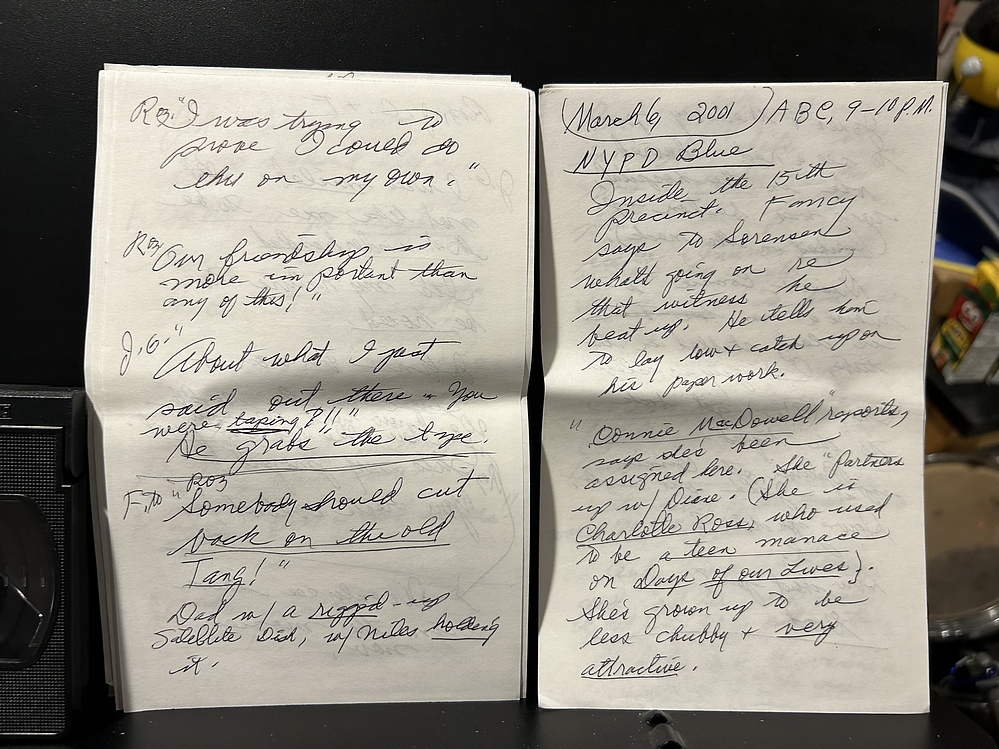 Roz: "I was trying to
prove I could do
this on my own."
Roz "Our friendship is
more important than
any of this!"
J.G. "About what I just
said out there – You
were taping?!!"
He grabs the tape.
F. to Roz "Somebody should cut
back on the old
Tang!"
Dad w/ a rigged-up
Satellite Dish, w/ Niles holding
it.
March 6, 2001 ABC, 9-10 P.M.
NYPD Blue
Inside the 15th
precinct. Fancy
says to Sorensen
what's going on re
that witness he
beat up. He tells him
to lay low + catch up on
his paper work.
"Connie MacDowell" reports,
says she's been
assigned here. She "Partners
up w/ Diane. (She is
Charlotte Ross, who used
to be a teen manace
on Days of our Lives).
She's grown up to be
less chubby + very
attractive.